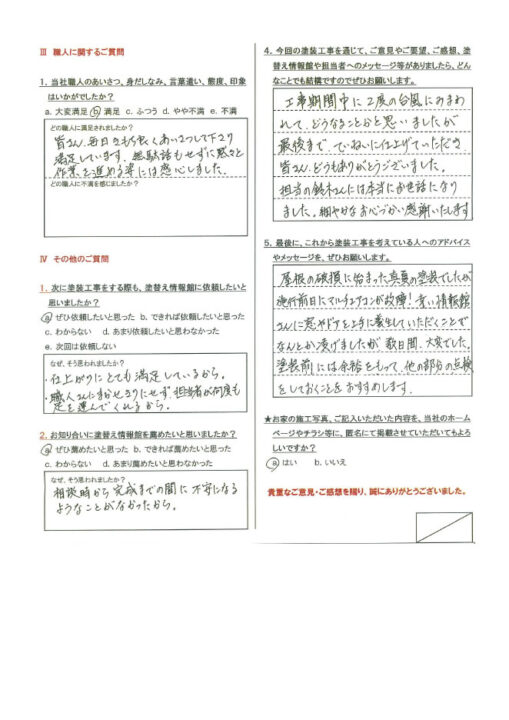 Ⅲ 職人に関するご質問
1. 当社職人のあいさつ、身だしなみ、言葉遣い、態度、印象
はいかがでしたか？
a. 大変満足 b. 満足 c. ふつう d. やや不満 e. 不満
どの職人に満足されましたか？
皆さん、毎日気もち良くあいさつして下さり
満足しています。無駄話もせずに黙々と
作業を進める姿には感心しました。
どの職人に不満を感じましたか？
Ⅳ その他のご質問
1. 次に塗装工事をする際も、塗替え情報館に依頼したいと
思いましたか？
a. ぜひ依頼したいと思った b. できれば依頼したいと思った
c. わからない d. あまり依頼したいと思わなかった
e. 次回は依頼しない
なぜ、そう思われましたか？
・仕上がりにとても満足しているから。
・職人さんにまかせきりにせず、担当者が何度も
足を運んでくれるから。
2. お知り合いに塗替え情報館を薦めたいと思いましたか？
a. ぜひ薦めたいと思った b. できれば薦めたいと思った
c. わからない d. あまり薦めたいと思わなかった
なぜ、そう思われましたか？
相談時から完成までの間に不安になる
ようなことがなかったから。
4. 今回の塗装工事を通じて、ご意見やご要望、ご感想、塗
替え情報館や担当者へのメッセージ等がありましたら、どん
なことでも結構ですのでぜひお願いします。
工事期間中に2度の台風にみまわ
れて、どうなることかと思いましたが
最後まで、ていねいに仕上げていただき
皆さん、どうもありがとうございました。
担当の鈴木さんには本当にお世話になり
ました。細やかなお心づかい感謝いたします
5. 最後に、これから塗装工事を考えている人へのアドバイス
やメッセージを、ぜひお願いします。
屋根の破損に始まった真夏の塗装でしたが
施行前日にマルチエアコンが故障！ 情報館
さんに窓やドアを上手に養生していただくことで
なんとか凌げましたが 数日間、大変でした。
塗装前には余裕をもって、他の部分の点検
をしておくことをおすすめします。
★お家の施工写真、ご記入いただいた内容を、当社のホーム
ページやチラシ等に、匿名にて掲載させていただいてもよろ
しいですか？
a. はい b. いいえ
貴重なご意見・ご感想を賜り、誠にありがとうございました。